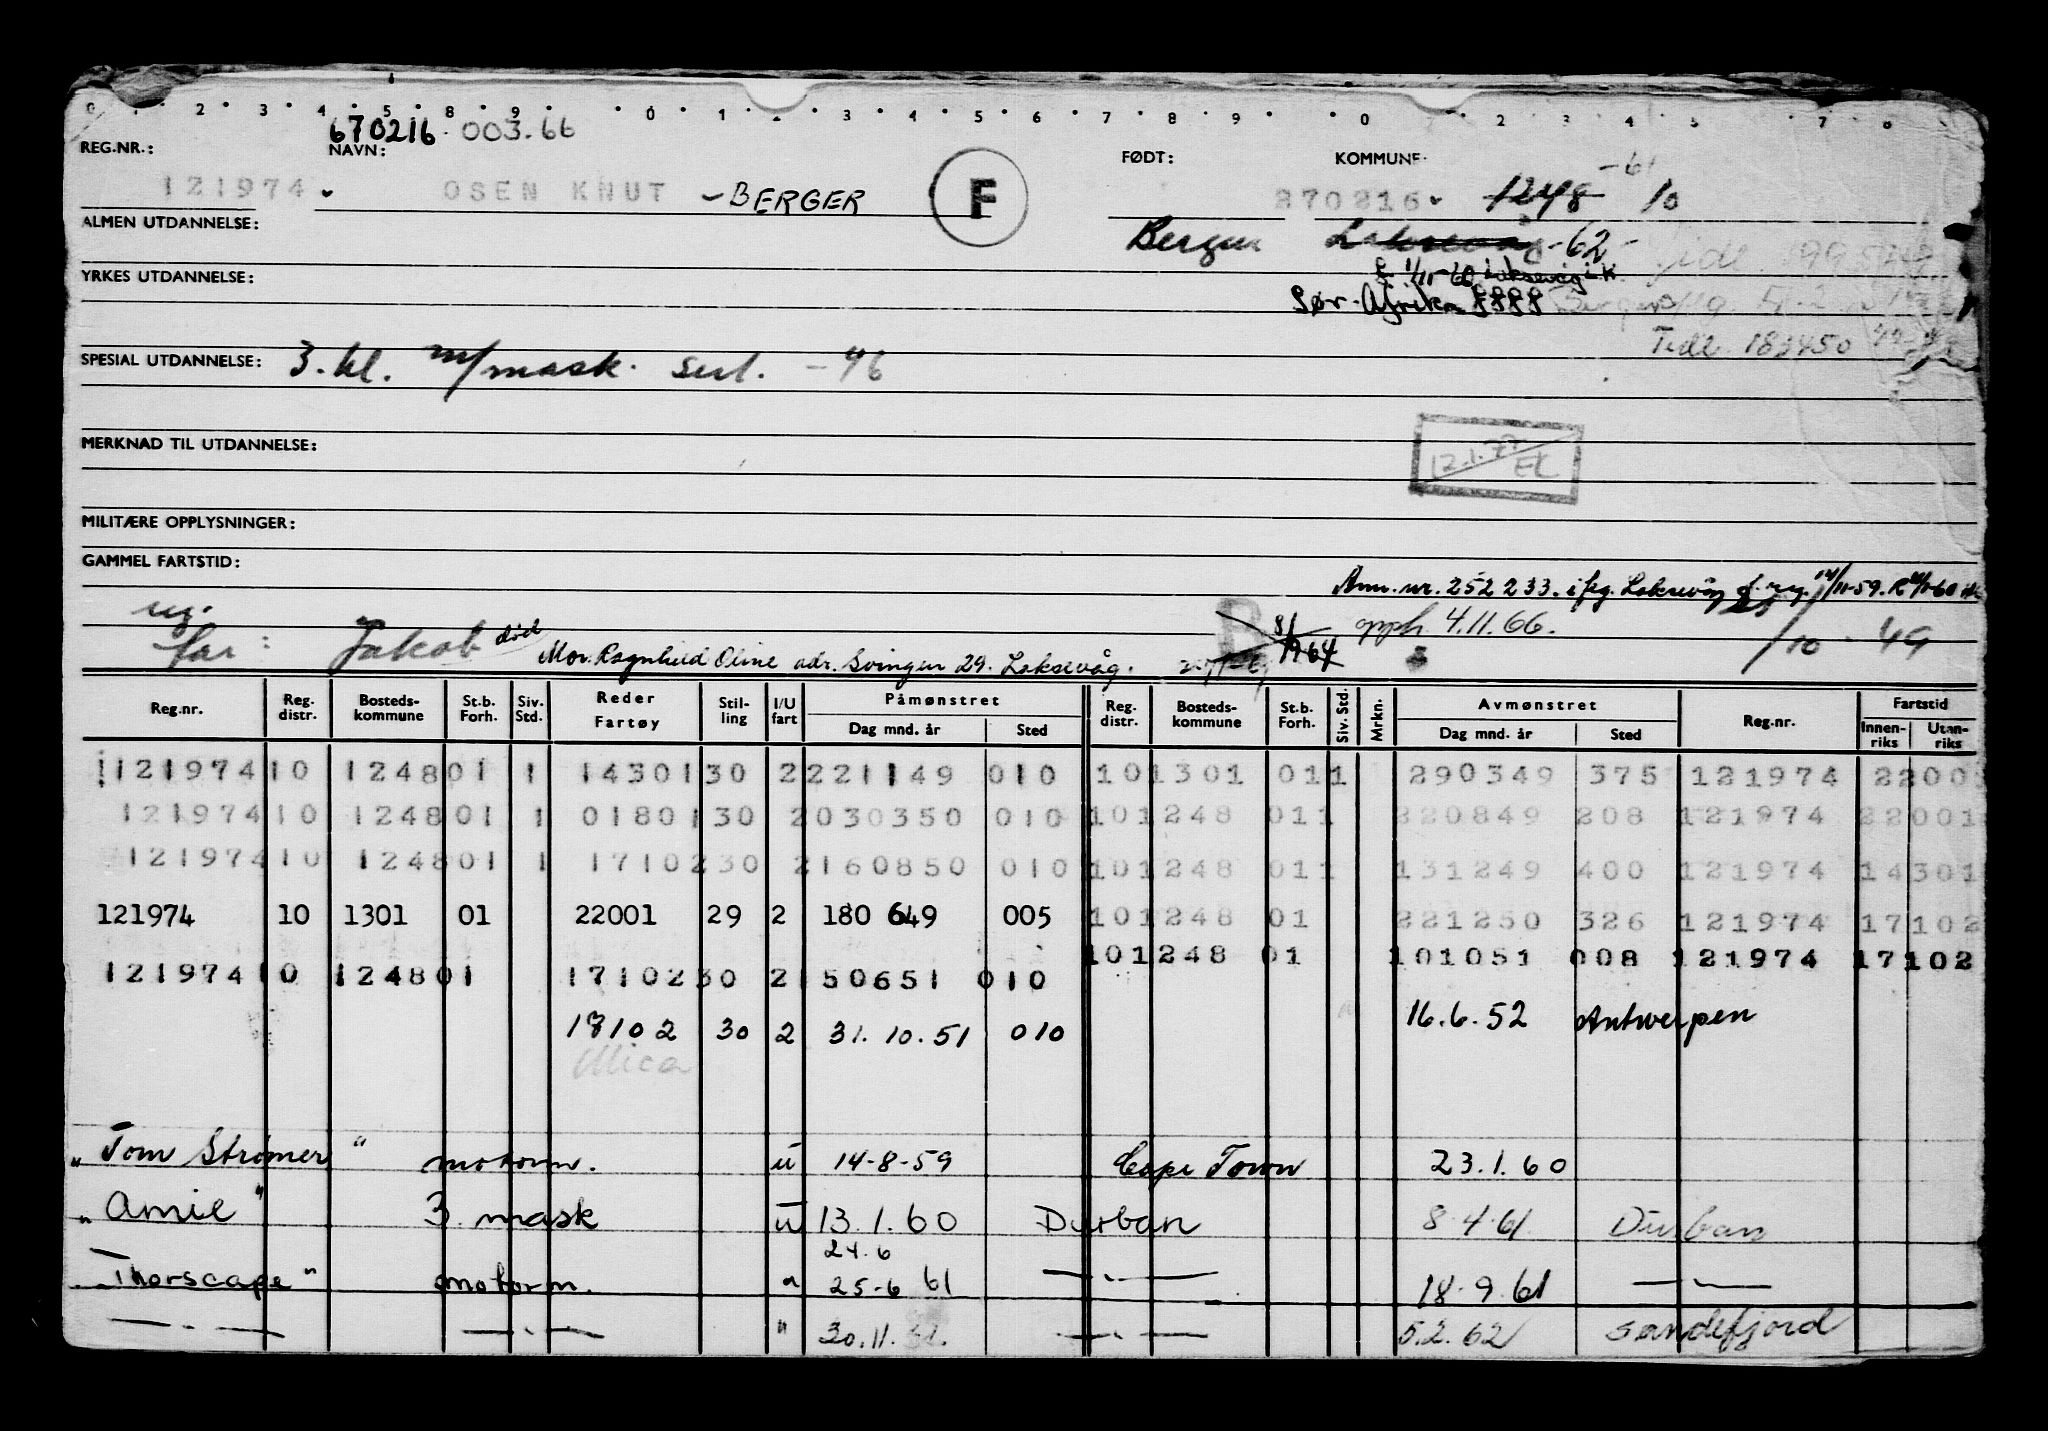 0 1 2 3 4 5 8 9 0 1 2 3 4 5 6 7 8 9 0 2 3 4 5 7 8
670216 003.66
REG.NR.: NAVN: FØDT: KOMMUNE:
-61
121974 OSEN KNUT -BERGER F 270216 1248 10
ALMEN UTDANNELSE: Bergen Laksevåg -62-
YRKES UTDANNELSE: f. 1/11-60 Laksevåg i.k.
Sør-Afrika
Tidl. 183450
SPESIAL UTDANNELSE: 3. kl. m/mask. sert. -46
MERKNAD TIL UTDANNELSE: 12.1.77 EL
MILITÆRE OPPLYSNINGER:
GAMMEL FARTSTID:
Ann. nr. 252233. i flg. Laksevåg
ug. 8/1 1964 opph 4.11.66.
far: Jakob død Mor. Ragnhild Oline adr. Svingen 29. Laksevåg. /10 - 49
Reg.nr. Reg. distr. Bosteds-kommune St.b. Forh. Siv. Std. Reder Fartøy Stil-ling I/U fart Påmønstret Dag mnd. år Sted Reg. distr. Bosteds-kommune St.b. Forh. Siv. Std. Mrkn. Avmønstret Dag mnd. år Sted Reg.nr. Fartstid Innen-riks Utan-riks
121974 10 1248 01 1 14301 30 2 221149 010 10 1301 01 1 290349 375 121974 2200
121974 10 1248 01 1 01801 30 2 030350 010 10 1248 01 1 220849 208 121974 22001
121974 10 1248 01 1 17102 30 2 160850 010 10 1248 01 1 131249 400 121974 14301
121974 10 1301 01 22001 29 2 180649 005 10 1248 01 221250 326 121974 17102
121974 10 1248 01 17102 30 2 150651 010 10 1248 01 101051 008 121974 17102
17102 30 2 31.10.51 010 16.6.52 Antwerpen
Mica
"Tom Strømer" motorm. u 14-8-59 Cape Town 23.1.60
"Amie" 3 mask u 13.1.60 Durban 8.4.61 Durban
24.6
"Thorscape" motorm. " 25-6 61 —"— 18.9.61 —"—
—"— —"— " 30.11.61. —"— 5.2.62 Sandefjord